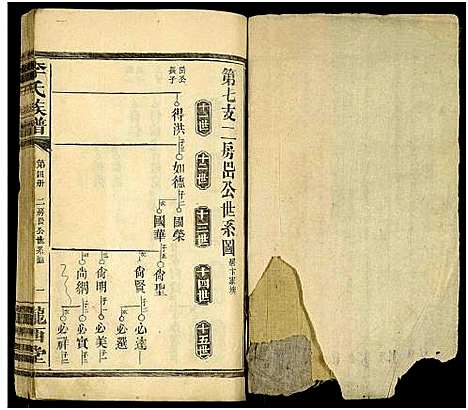 第七支二房嵒公世系圖
十一世 十二世 十三世 十四世 十五世
長子
得洪
如德
國榮
國華
尙聖
尙賢
尙明
尚綱
必達
必選
必美
必實
必祥
李氏族譜
第四册
二房嵒公世系圖
一
隴西堂